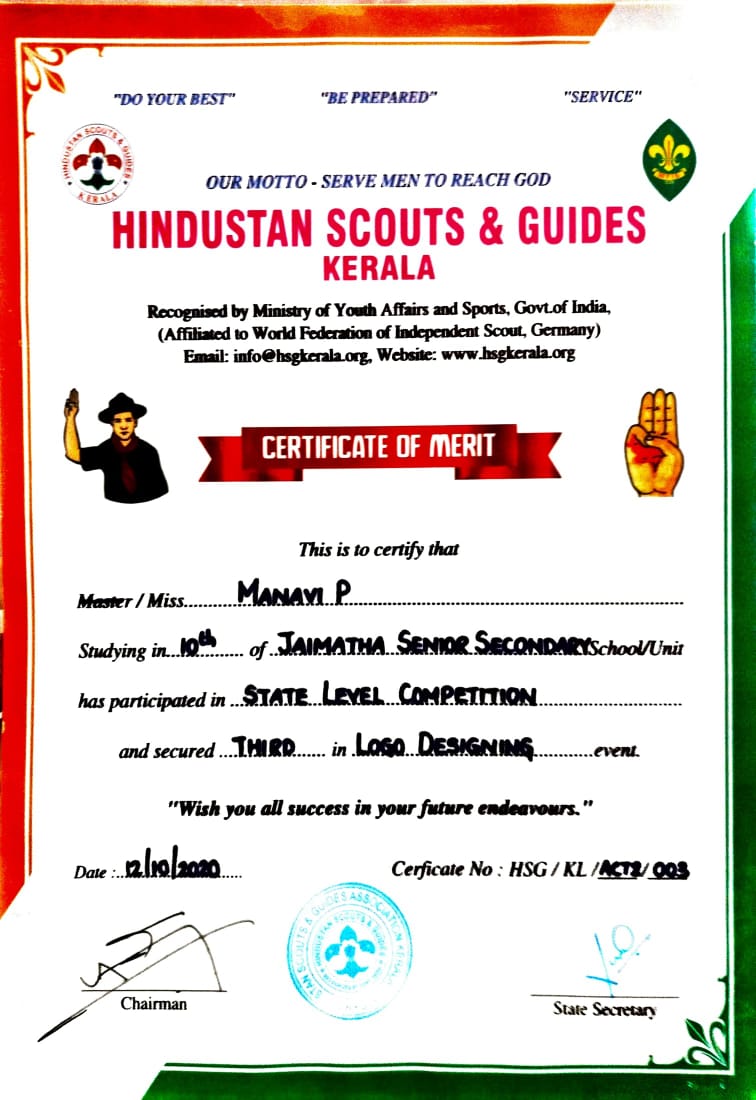 "DO YOUR BEST" "BE PREPARED" "SERVICE"
HINDUSTAN SCOUTS & GUIDES
KERALA
OUR MOTTO - SERVE MEN TO REACH GOD
HINDUSTAN SCOUTS & GUIDES
KERALA
Recognised by Ministry of Youth Affairs and Sports, Govt.of India,
(Affiliated to World Federation of Independent Scout, Germany)
Email: info@hsgkerala.org, Website: www.hsgkerala.org
CERTIFICATE OF MERIT
This is to certify that
Master / Miss MANAVI P
Studying in 10th of JAIMATHA SENIOR SECONDARY School/Unit
has participated in STATE LEVEL COMPETITION
and secured THIRD in LOGO DESIGNING event.
"Wish you all success in your future endeavours."
Date : 12/10/2020 Cerficate No : HSG / KL / ACT2/ 003
Chairman State Secretary